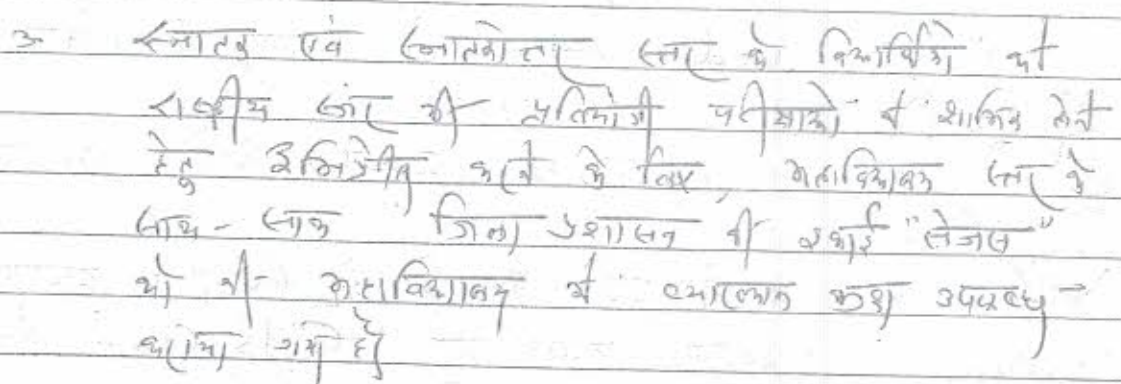 3 स्नातक एवं स्नातकोत्तर स्तर के विद्यार्थियों को
राष्ट्रीय स्तर की प्रतियोगी परीक्षाओं में शामिल होने
हेतु करने के लिए, महाविद्यालय स्तर के
साथ-साथ जिला प्रशासन की इकाई "सेजस"
को भी महाविद्यालय में व्याख्यान कक्ष उपलब्ध
कराया गया है